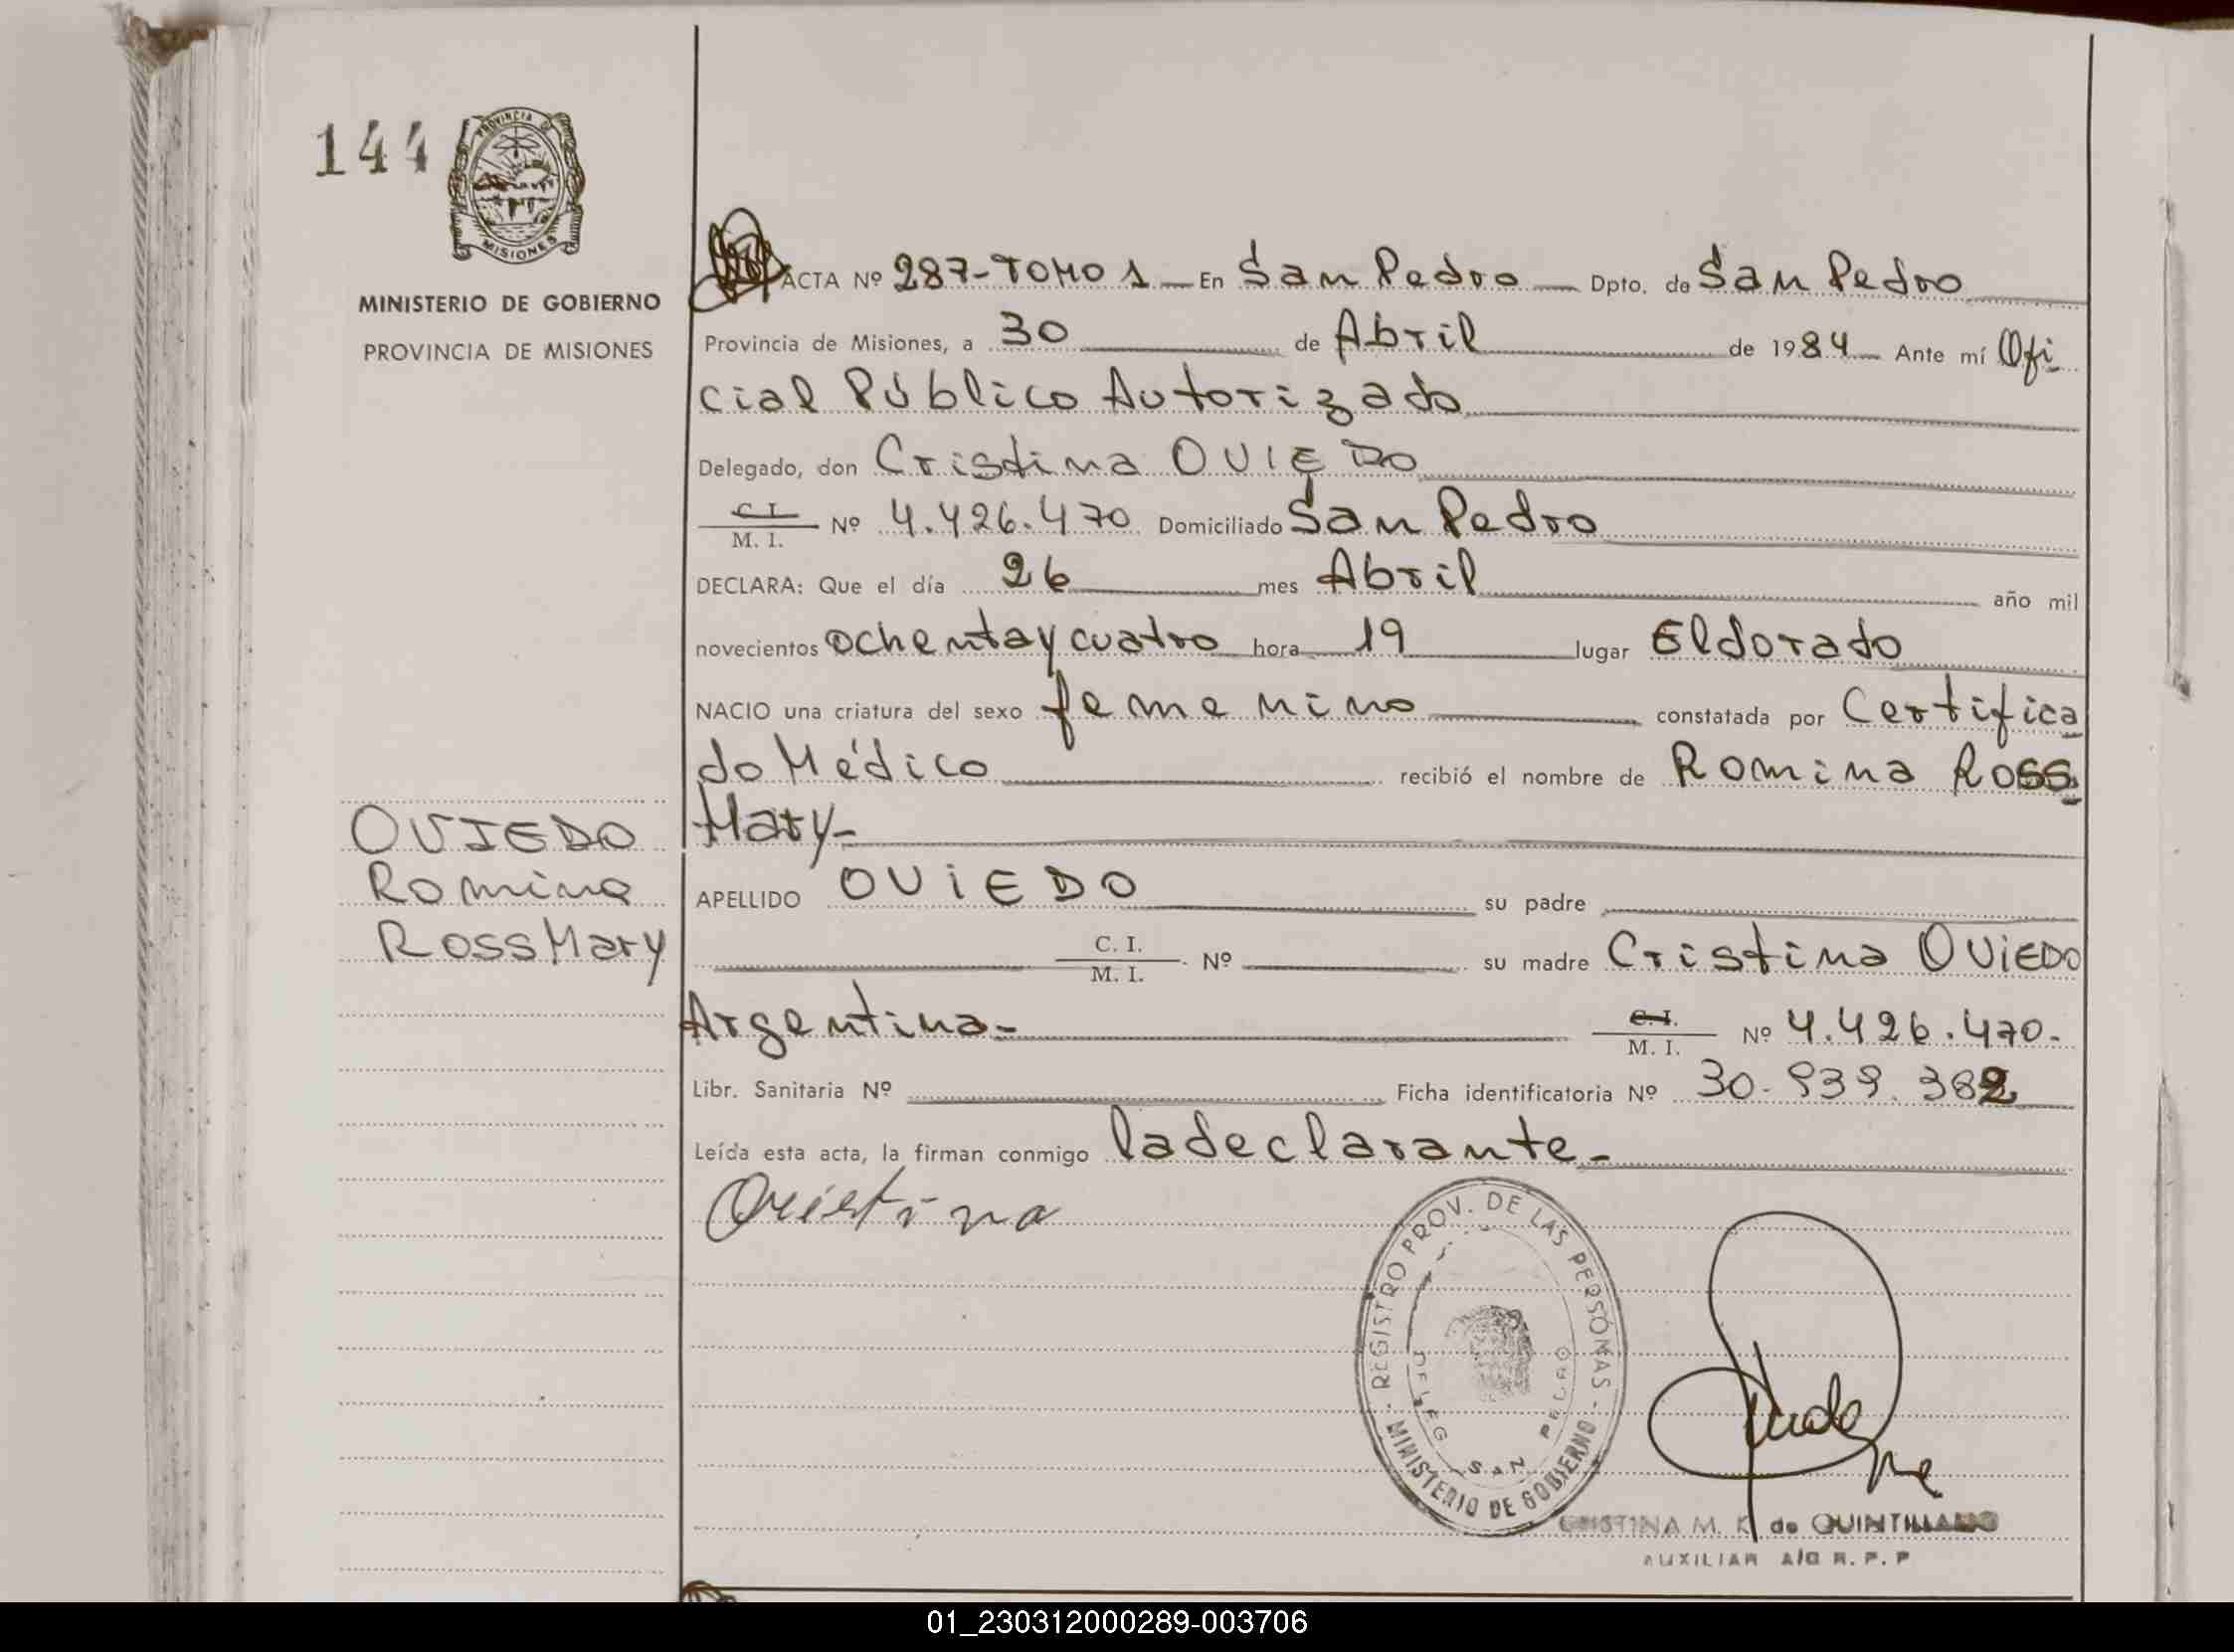 144
PROVINCIA DE
MISIONES
MINISTERIO DE GOBIERNO
PROVINCIA DE MISIONES
ACTA Nº 287-TOMO 1 En San Pedro Dpto. de San Pedro
Provincia de Misiones, a 30 de Abril de 1984 Ante mí Ofi
cial Público Autorizado
Delegado, don Cristina OVIEDO
C. I.
M. I. Nº 4.426.470 Domiciliado San Pedro
DECLARA: Que el día 26 mes Abril año mil
novecientos ochenta y cuatro hora 19 lugar Eldorado
NACIO una criatura del sexo femenino constatada por Certifica
do Médico recibió el nombre de Romina Ross
Mary-
OVIEDO
Romina
Ross Mary
APELLIDO OVIEDO su padre
C. I.
M. I. Nº su madre Cristina OVIEDO
Argentina- C. I.
M. I. Nº 4.426.470-
Libr. Sanitaria Nº Ficha identificatoria Nº 30-939.382
Leída esta acta, la firman conmigo la declarante-
Cristina
REGISTRO PROV. DE LAS PERSONAS
- MINISTERIO DE GOBIERNO -
DELEG SAN PEDRO
CRISTINA M. K. de QUINTILLANO
AUXILIAR A/C R. P. P
01_230312000289-003706